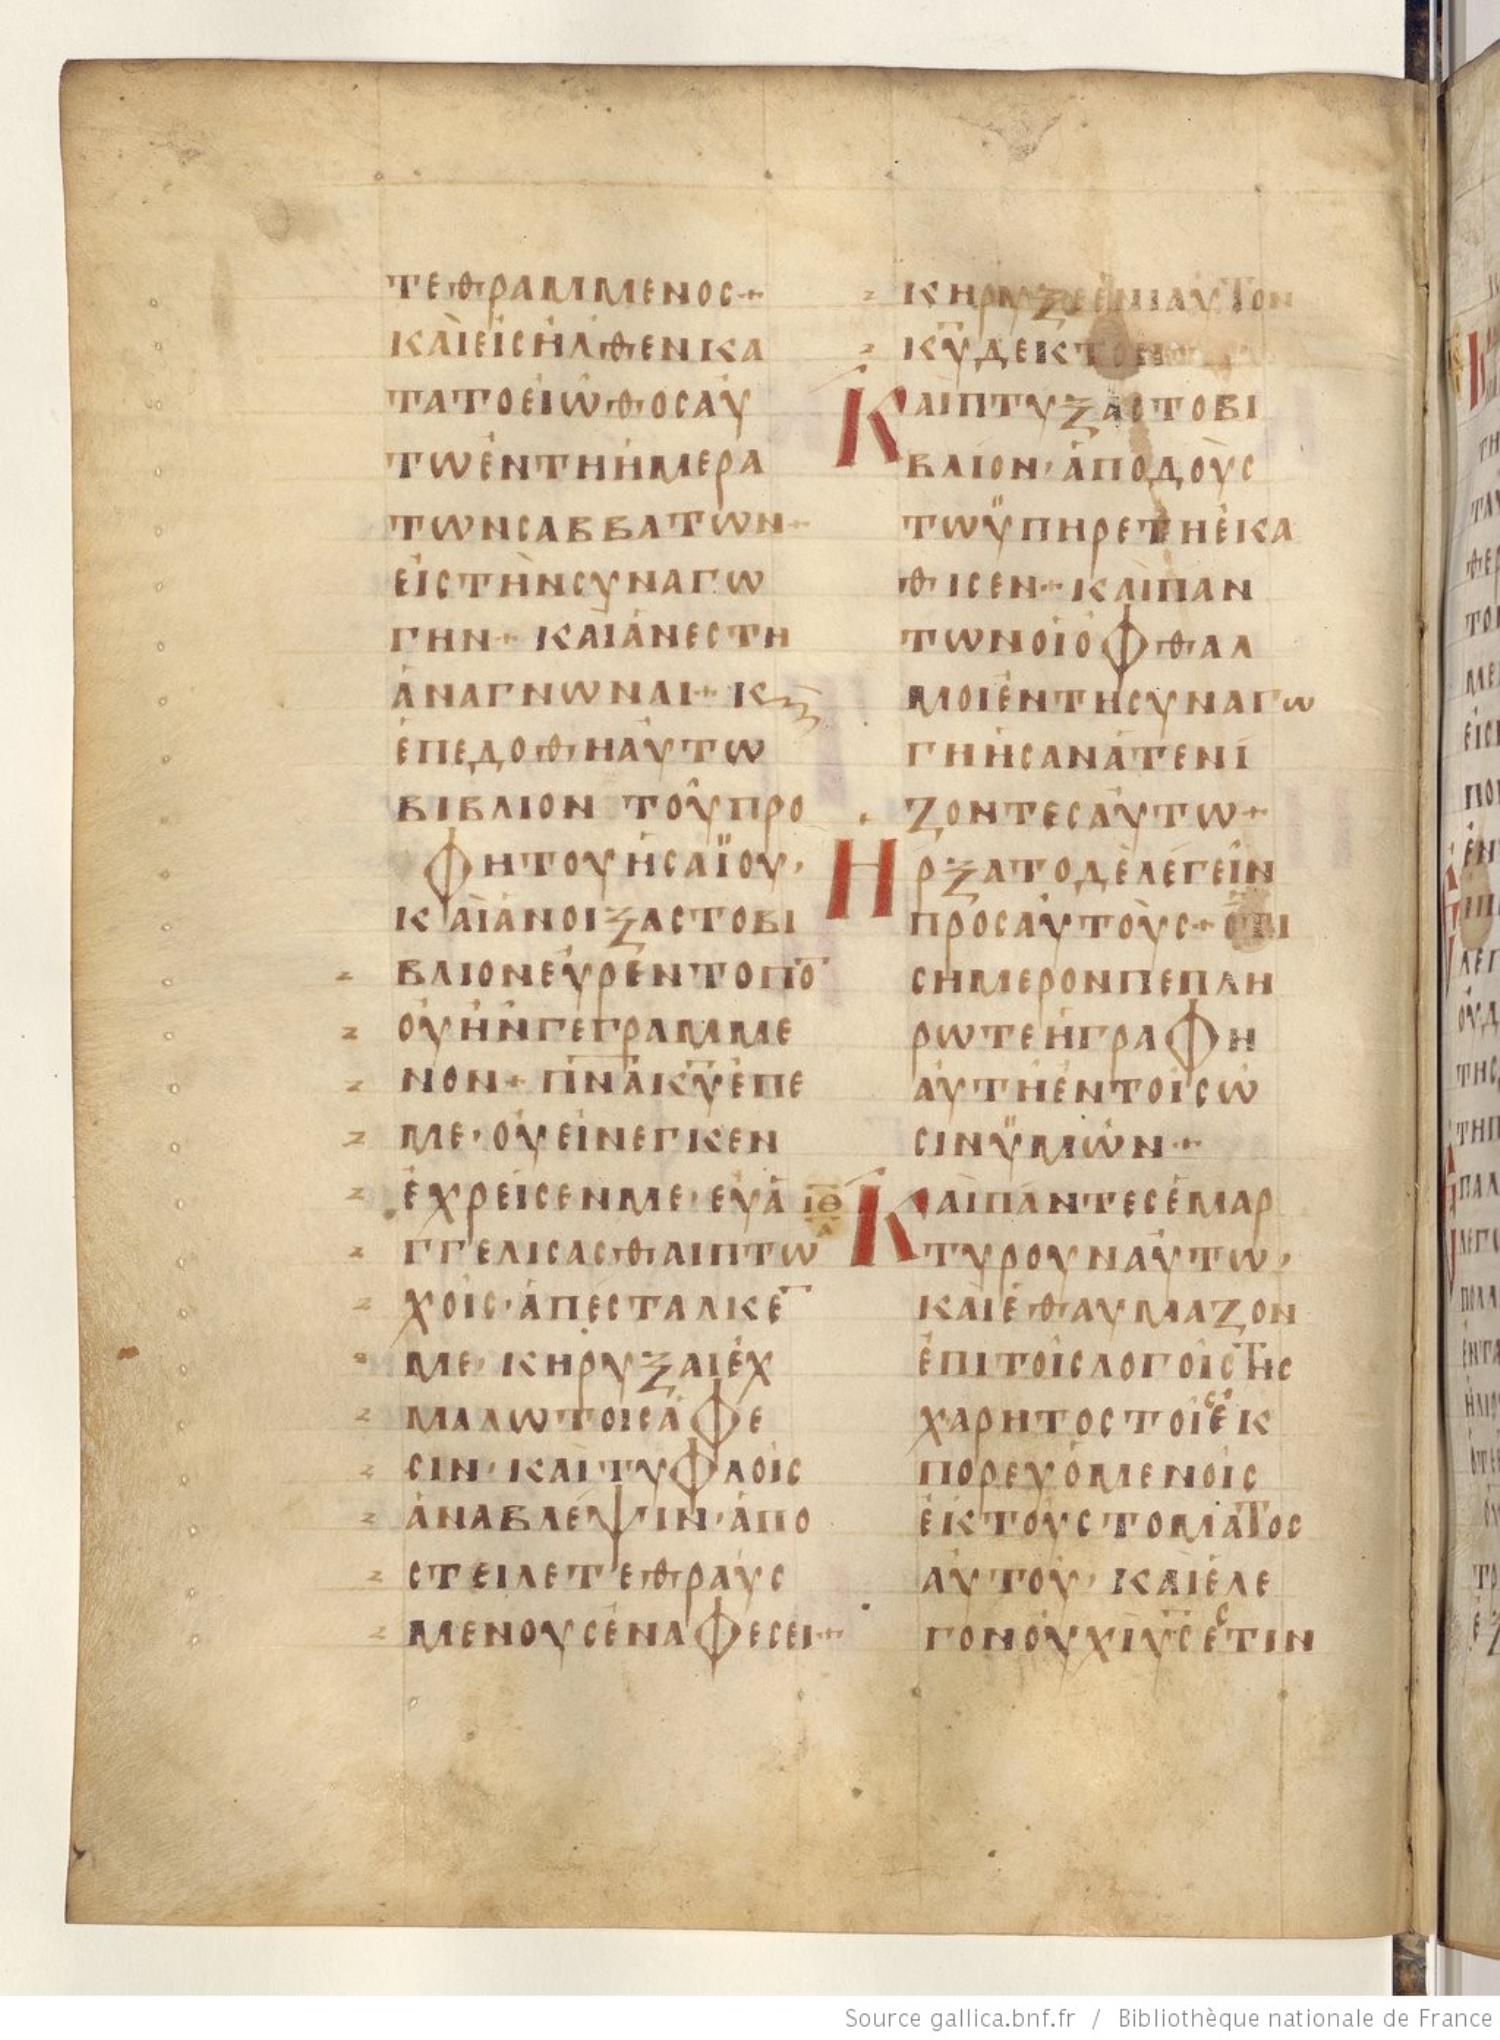 ΤΕΘΡΑΜΜΕΝΟΣ+
ΚΑῚΕἸΣΗΛΘΕΝΚΑ
ΤΑΤΟΕἸΩΘΟΣΑΥ
ΤΩἘΝΤΗἩΜΕΡΑ
ΤΩΝΣΑΒΒΑΤΩΝ+
ΕἸΣΤῊΝΣΥΝΑΓΩ
ΓΗΝ+ ΚΑῚἈΝΕΣΤΗ
ἈΝΑΓΝΩΝΑΙ+ Κ
ἘΠΕΔΟΘΗΑΥΤΩ
ΒΙΒΛΙΟΝ ΤΟΥΠΡΟ
ΦΗΤΟΥἨΣΑΪΟΥ·
ΚΑῚἈΝΟΙΞΑΣΤΟΒΙ
ΒΛΙΟΝΕΥΡΕΝΤΟΠΟ̅
ΟΥἮΝΓΕΓΡΑΜΜΕ
ΝΟΝ+ Π̅Ν̅Α̅Κ̅Υ̅ἘΠΕ
ΜΕ·ΟΥΕΙΝΕΓΚΕΝ
ἘΧΡΕΙΣΕΝΜΕ·ΕΥΑ
ΓΓΕΛΙΣΑΣΘΑΙΠΤΩ
ΧΟΙΣ·ἈΠΕΣΤΑΛΚΕ̅
ΜΕ· ΚΗΡΥΞΑΙΕΧ
ΜΑΛΩΤΟΙΣΑΦΕ
ΣΙΝ·ΚΑῚΤΥΦΛΟΙΣ
ἈΝΑΒΛΕΨΙΝ·ἈΠΟ
ΣΤΕΙΛΕΤΕΘΡΑΥΣ
ΜΕΝΟΥΣἘΝΑΦΕΣΕΙ+
ΚΗΡΥΞΕΕΝΙΑΥΤΟΝ
Κ̅Υ̅ΔΕΚΤΟΝ
ΚΑΙΠΤΥΞΑΣΤΟΒΙ
ΒΛΙΟΝ·ἈΠΟΔΟΥΣ
ΤΩΫΠΗΡΕΤΗἘΚΑ
ΘΙΣΕΝ+ ΚΑῚΠΑΝ
ΤΩΝΟἹΟΦΘΑΛ
ΜΟΙἘΝΤΗΣΥΝΑΓΩ
ΓΗἨΣΑΝΑΤΕΝΙ
ΖΟΝΤΕΣΑΥΤΩ+
ΗΡΞΑΤΟΔΕΛΕΓΕΙΝ
ΠΡΟΣΑΥΤΟΥΣ+ὍΤΙ
ΣΗΜΕΡΟΝΠΕΠΛΗ
ΡΩΤΕἩΓΡΑΦΗ
ΑΥΤΗἘΝΤΟΙΣΩ
ΣΙΝΫΜΩΝ+
Ι̅Θ̅
Α̅
ΚΑΙΠΑΝΤΕΣἘΜΑΡ
ΤΥΡΟΥΝΑΥΤΩ·
ΚΑῚἘΘΑΥΜΑΖΟΝ
ἘΠΙΤΟΙΣΛΟΓΟΙΣΤΗΣ
ΧΑΡΗΤΟΣΤΟΙΣἘΚ
ΠΟΡΕΥΟΜΕΝΟΙΣ
ἘΚΤΟΥΣΤΟΜΑΤΟΣ
ΑΥΤΟΥ· ΚΑῚἘΛΕ
ΓΟΝΟΥΧΙΥΣΕΣΤΙΝ
Source gallica.bnf.fr / Bibliothèque nationale de France